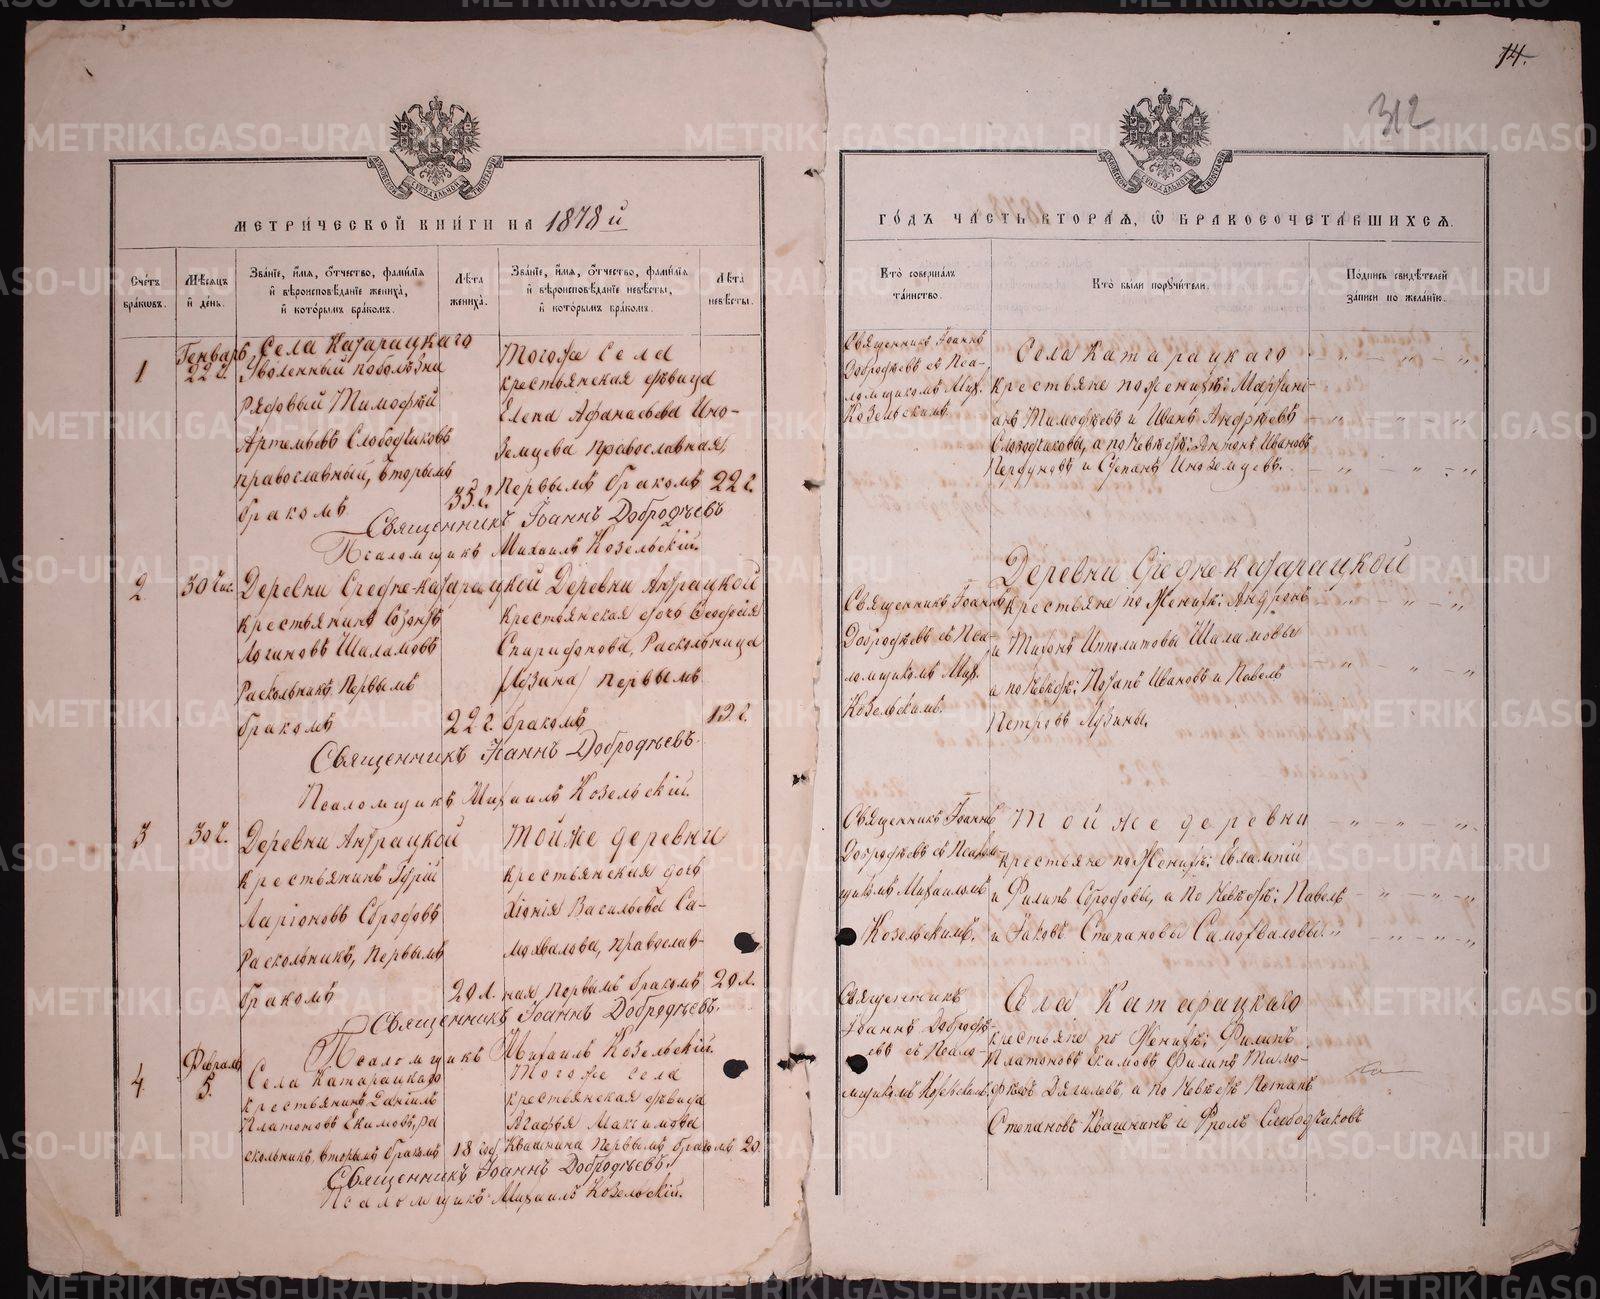 14.
312
МЕТРИЧЕСКОЙ КНИГИ НА 1878 й
Счетъ браковъ.
Мѣсяцъ и день.
Званіе, имя, отчество, фамилія и вѣроисповѣданіе жениха, и которымъ бракомъ.
Лѣта жениха.
Званіе, имя, отчество, фамилія и вѣроисповѣданіе невѣсты, и которымъ бракомъ.
Лѣта невѣсты.
1
Генварь
22 ч.
Села Катарацкаго
Уволенный по болѣзни
Рядовый Тимофей
Артемьевъ Слободчиковъ
православный, вторымъ
бракомъ
35 г.
Тогоже села
крестьянская дѣвица
Елена Афанасьева Ино-
земцева православная,
первымъ бракомъ
22 г.
Священникъ Іоаннъ Добродѣевъ
Псаломщикъ Михаилъ Козельскій.
2
30 Чис.
Деревни Средне-катарацкой
крестьянинъ Созонъ
Логиновъ Шаламовъ
Раскольникъ, Первымъ
бракомъ
22 г.
Деревни Антрацкой
крестьянская дочь
Спиридонова, Раскольница
/Лузина/ первымъ
бракомъ
19 г.
Священникъ Іоаннъ Добродѣевъ.
Псаломщикъ Михаилъ Козельскій.
3
30 ч.
Деревни Антрацкой
крестьянинъ
Ларіоновъ
Раскольникъ, Первымъ
бракомъ
20 л.
Тойже деревни
крестьянская дочь
Хіонія Васильева Са-
мохвалова, православ-
ная первымъ бракомъ
20 л.
Священникъ Іоаннъ Добродѣевъ.
Псаломщикъ Михаилъ Козельскій.
4
Февраль
5.
Села Катарацкаго
крестьянинъ Даніилъ
Платоновъ Екимовъ, ра
скольникъ, вторымъ бракомъ
18 год.
Тогоже села
крестьянская дѣвица
Агафья Максимова
Квашнина первымъ бракомъ
20.
Священникъ Іоаннъ Добродѣевъ.
Псаломщикъ Михаилъ Козельскій.
ГОДЪ ЧАСТЬ ВТОРАЯ, Ѡ БРАКОСОЧЕТАВШИХСЯ.
Кто совершалъ таинство.
Кто были поручители.
Подпись свидѣтелей записи по желанію.
Священникъ Іоаннъ
Добродѣевъ съ Пса-
ломщикомъ Мих.
Козельскимъ.
Села Катарацкаго
крестьяне по женихѣ: Мартині-
анъ Тимофѣевъ и Иванъ Андрѣевъ
Слободчиковы, а по невѣстѣ: Антонъ Ивановъ
и Степанъ Иноземцевъ.
Священникъ Іоаннъ
Добродѣевъ съ Пса-
ломщикомъ Мих.
Козельскимъ.
Деревни Средне-катарацкой
крестьяне по Женихѣ: Андронъ
и Тихонъ Ипполитовы Шаламовы
а по невѣстѣ: Потапъ Ивановъ и Павелъ
Петровъ Лузины.
Священникъ Іоаннъ
Добродѣевъ съ Псалом-
щикомъ Михаиломъ
Козельскимъ.
Тойже деревни
крестьяне по Женихѣ: Евлампій
и Филипъ а по невѣстѣ: Павелъ
и Яковъ Степановы Самохваловы.
Священникъ
Іоаннъ Добродѣ-
евъ съ Псало-
мщикомъ Козельским.
Села Катарацкаго
крестьяне по Женихѣ: Филипъ
Платоновъ Екимовъ, Филипъ Тимо-
фѣевъ Дягилевъ, а по невѣстѣ Потапъ
Степановъ Квашнинъ и Фролъ Слободчиковъ
METRIKI.GASO-URAL.RU